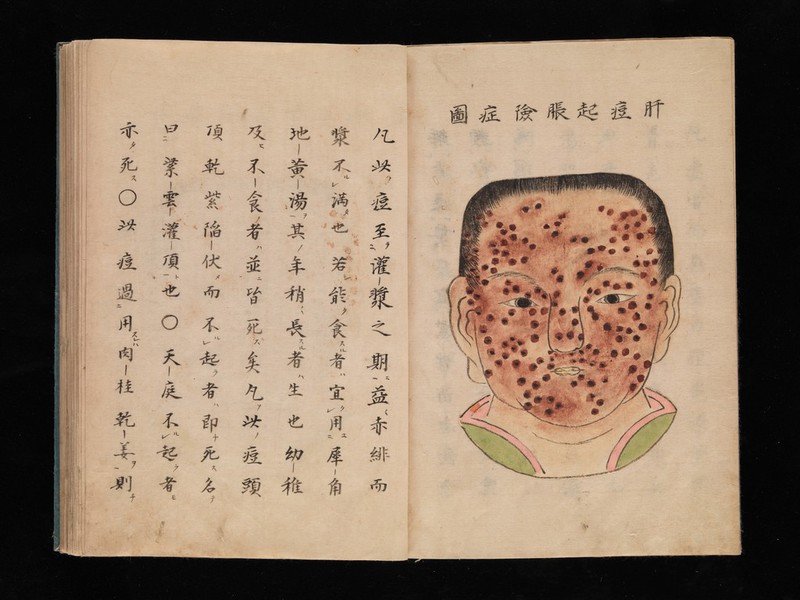 肝痘起脹險症圖
凡此痘至灌漿之期益赤緋而
漿不滿也若能食者宜用犀角
地黄湯其年稍長者生也幼稚
及不食者並皆死矣凡此痘頭
頂乾紫陷伏而不起者即死名
曰紫雲灌頂也〇天庭不起者
亦死〇此痘過用肉桂乾姜則